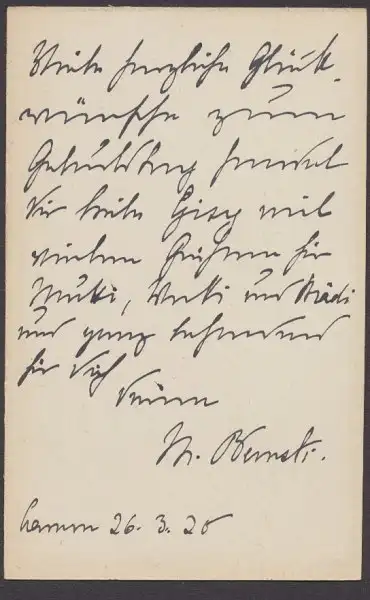 Viele herzliche Glück-
wünsche zum
Geburtstag sendet
Dir liebe Gisy mit
vielen Grüßen für
Mutti, Vati und Mädi
und ganz besonders
für Dich
Deine
M.
Hamm 26. 3. 20